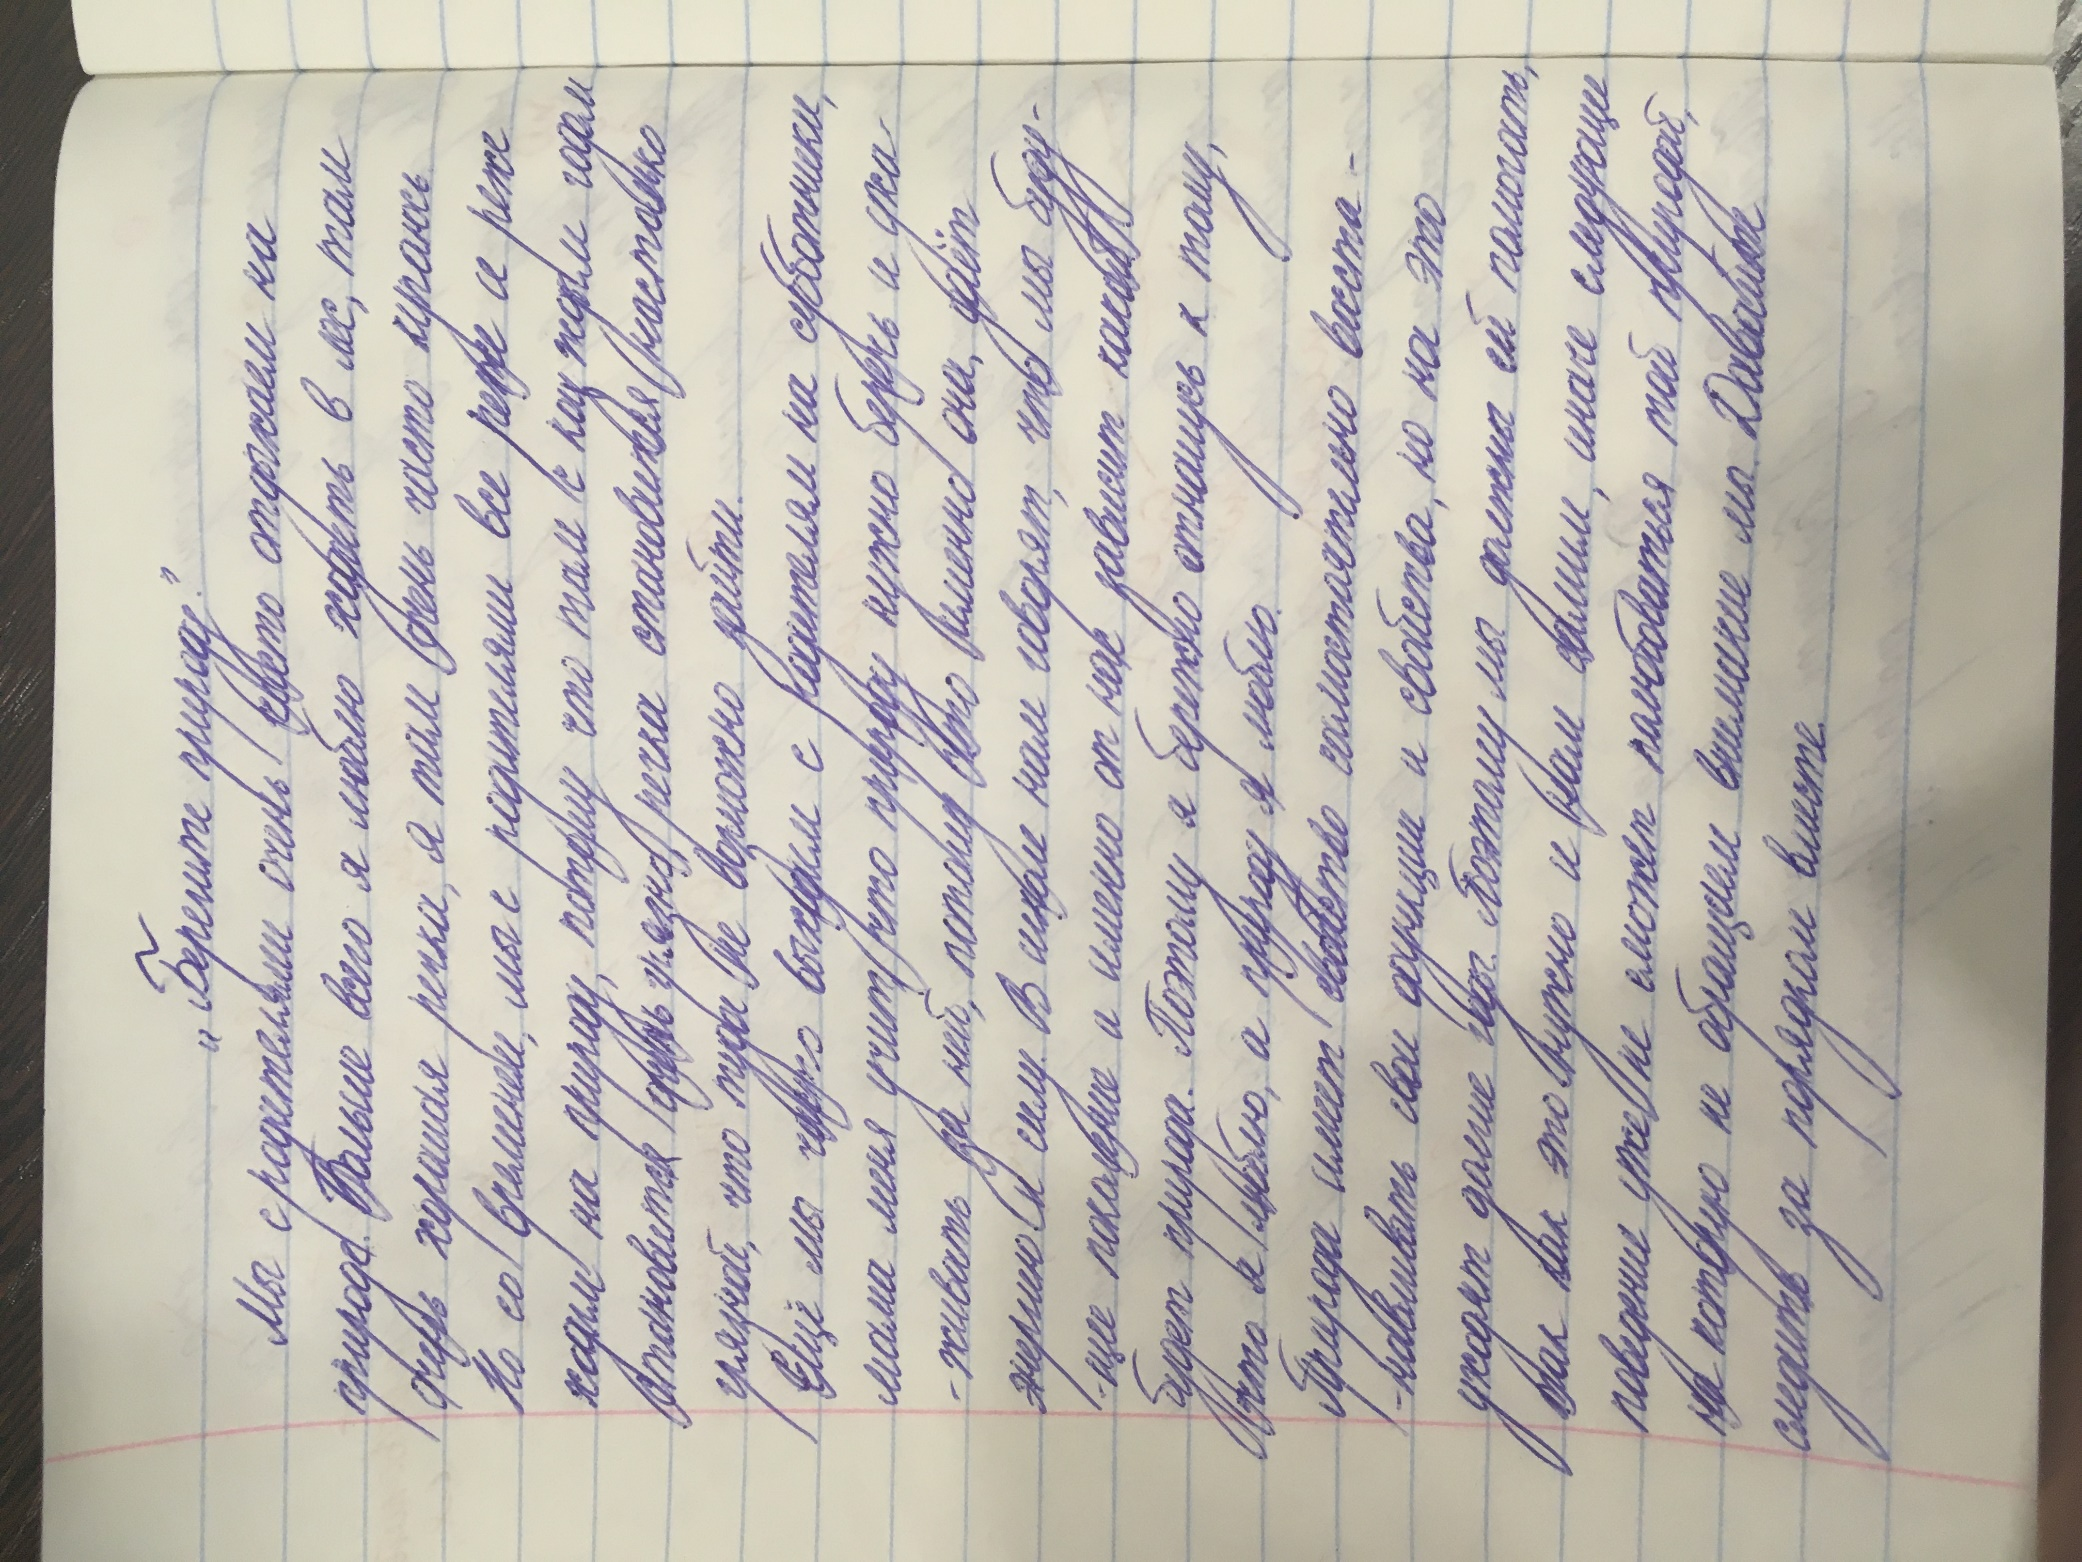 „Берегите природу."
Мы с родителями очень часто отдыхаем на
природе. Больше всего я люблю ходить в лес, там
очень хорошая речка, я там очень часто купаюсь
Но со временем, мы с родителями все реже и реже
ходим на природу, потому что там с каждым годом
становится очень грязно, речка становится настолько
грязной, что туда не возможно зайти.
Ещё мы часто выходим с родителям на субботники,
мама меня учит что природу нужно беречь и уха-
-живать за ней, потому что именно она, даёт
энергию и силу. В школе нам говорят, что мы буду-
-щие поколение и именно от нас зависит какой
будет природа. Поэтому я бережно отношусь к тому,
что я люблю, а природу я люблю.
Природа имеет свойство самостоятельно восста-
-навливать свои функции и свойства, но на это
уходят долгие годы. Поэтому мы должны ей помогать,
так как это нужно и нам самим, иначе следующие
поколение уже не сможет полюбоваться той природой,
на которую не обращаем внимание мы. Давайте
следить за порядком вместе.